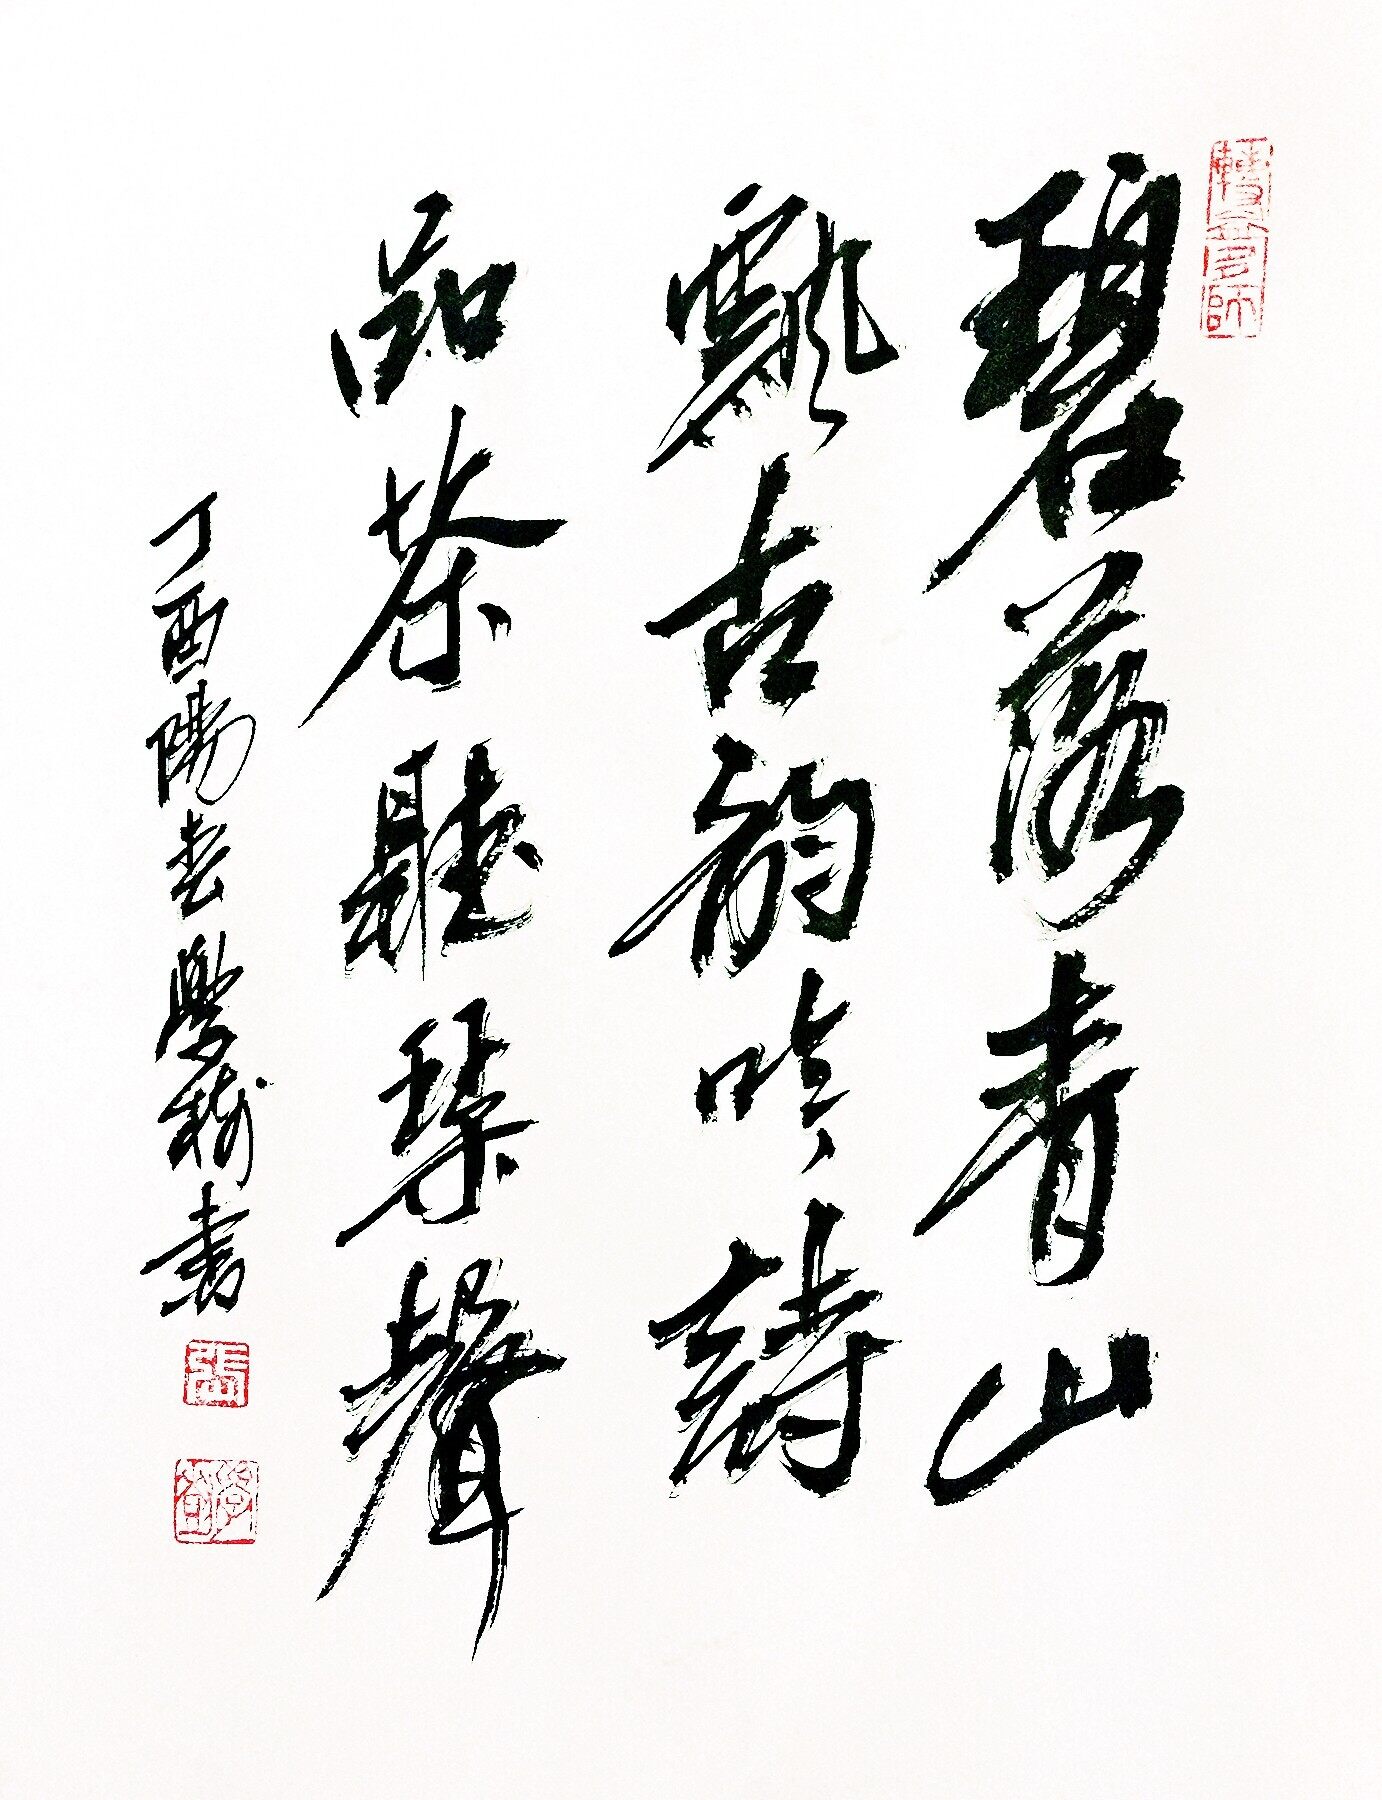 碧落青山
飄古韵吟詩
品茶聽琴聲
丁酉陽春學樹書